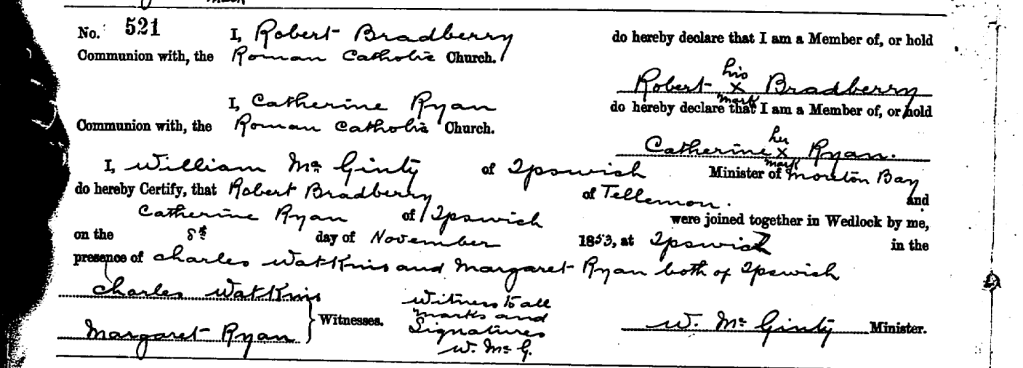 No. 521 I, Robert Bradberry do hereby declare that I am a Member of, or hold
Communion with, the Roman Catholic Church.
his
Robert X Bradberry
mark
I, Catherine Ryan do hereby declare that I am a Member of, or hold
Communion with, the Roman Catholic Church.
her
Catherine X Ryan.
mark
I, William McGinty of Ipswich Minister of Moreton Bay
do hereby Certify, that Robert Bradberry of Tellemon. and
Catherine Ryan of Ipswich were joined together in Wedlock by me,
on the 8th day of November 1853, at Ipswich in the
presence of Charles Watkins and Margaret Ryan both of Ipswich
Charles Watkins
Margaret Ryan
} Witnesses.
Witness to all
marks and
Signatures
W. McG.
W. McGinty Minister.